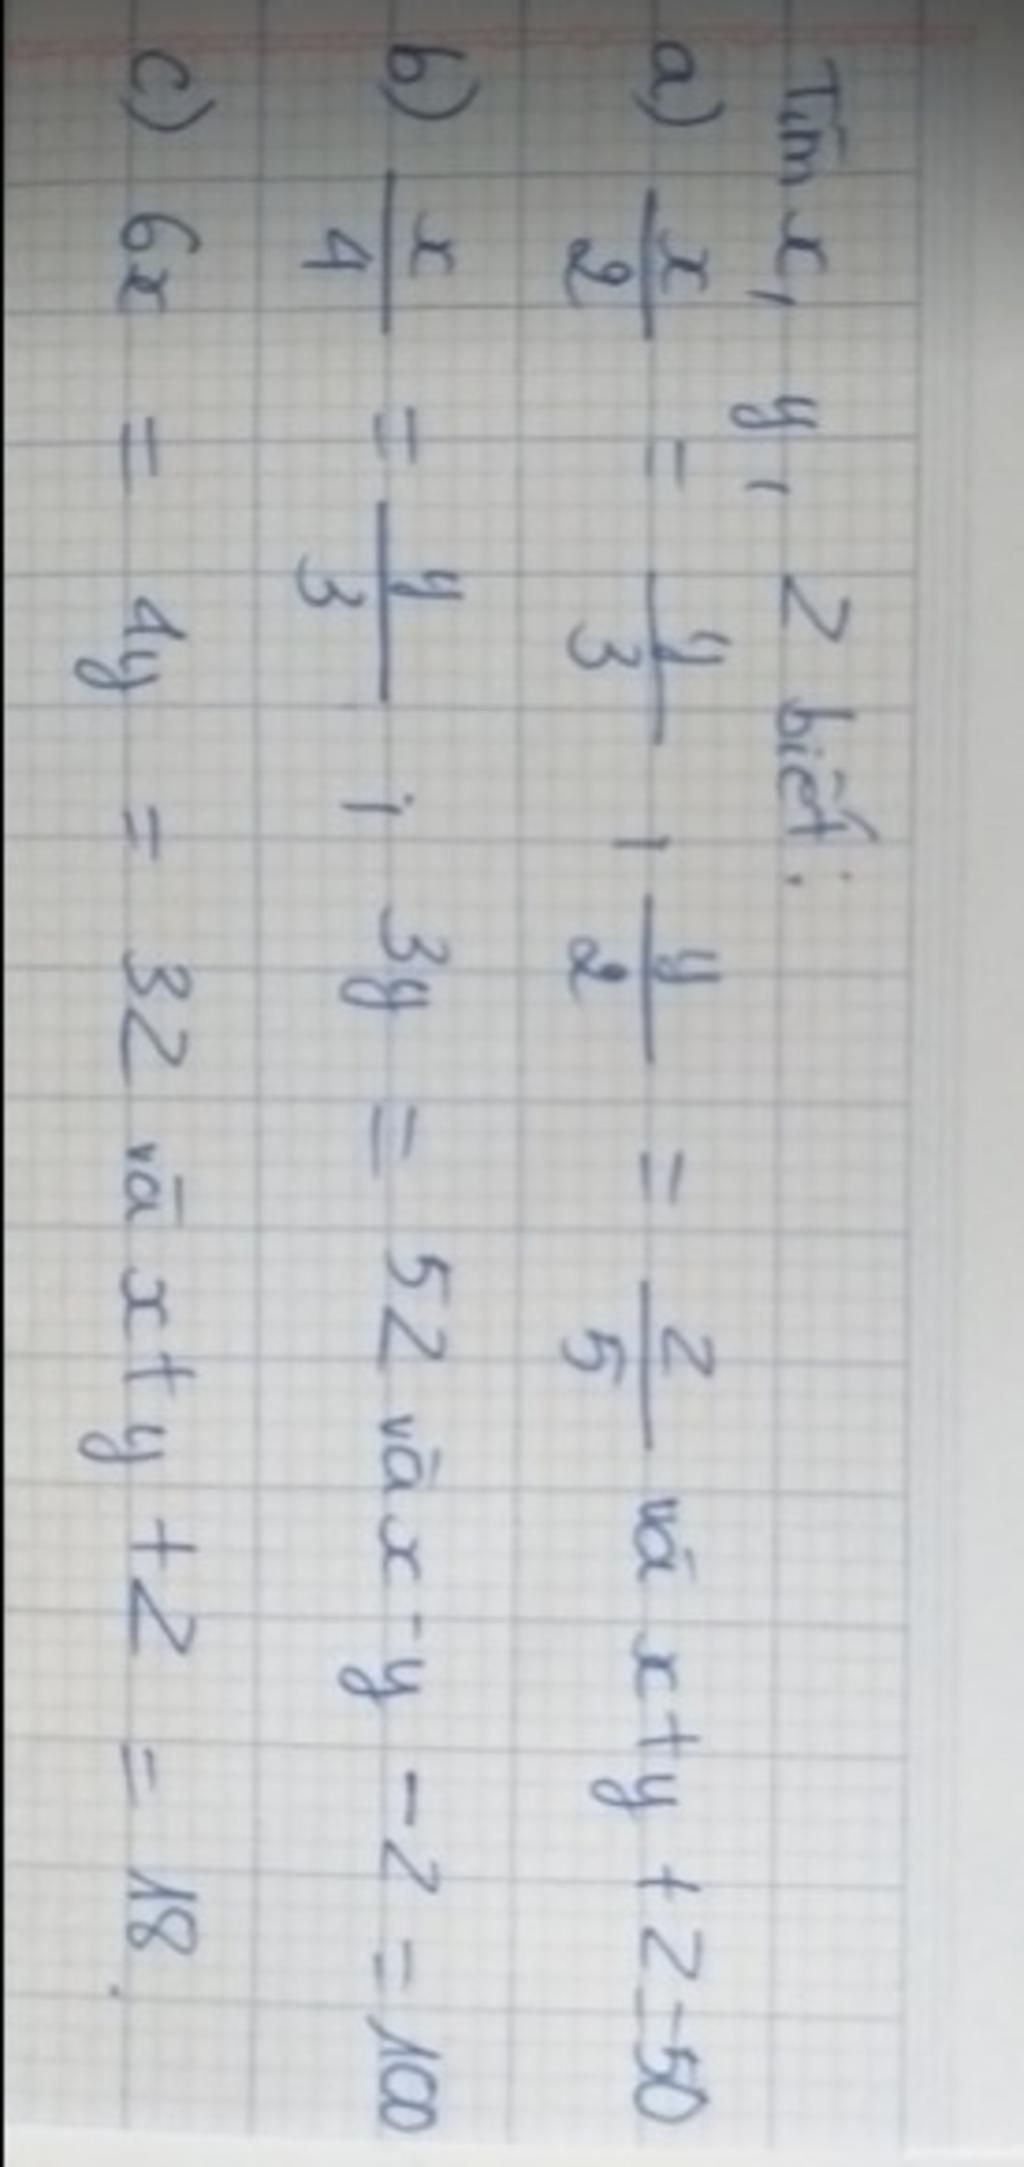 Tìm x, y, z biết:
a) x/2 = y/3, y/2 = z/5 và x+y+z=50
b) x/4 = y/3; 3y = 5z và x-y-z=100
c) 6x = 4y = 3z và x+y+z = 18.